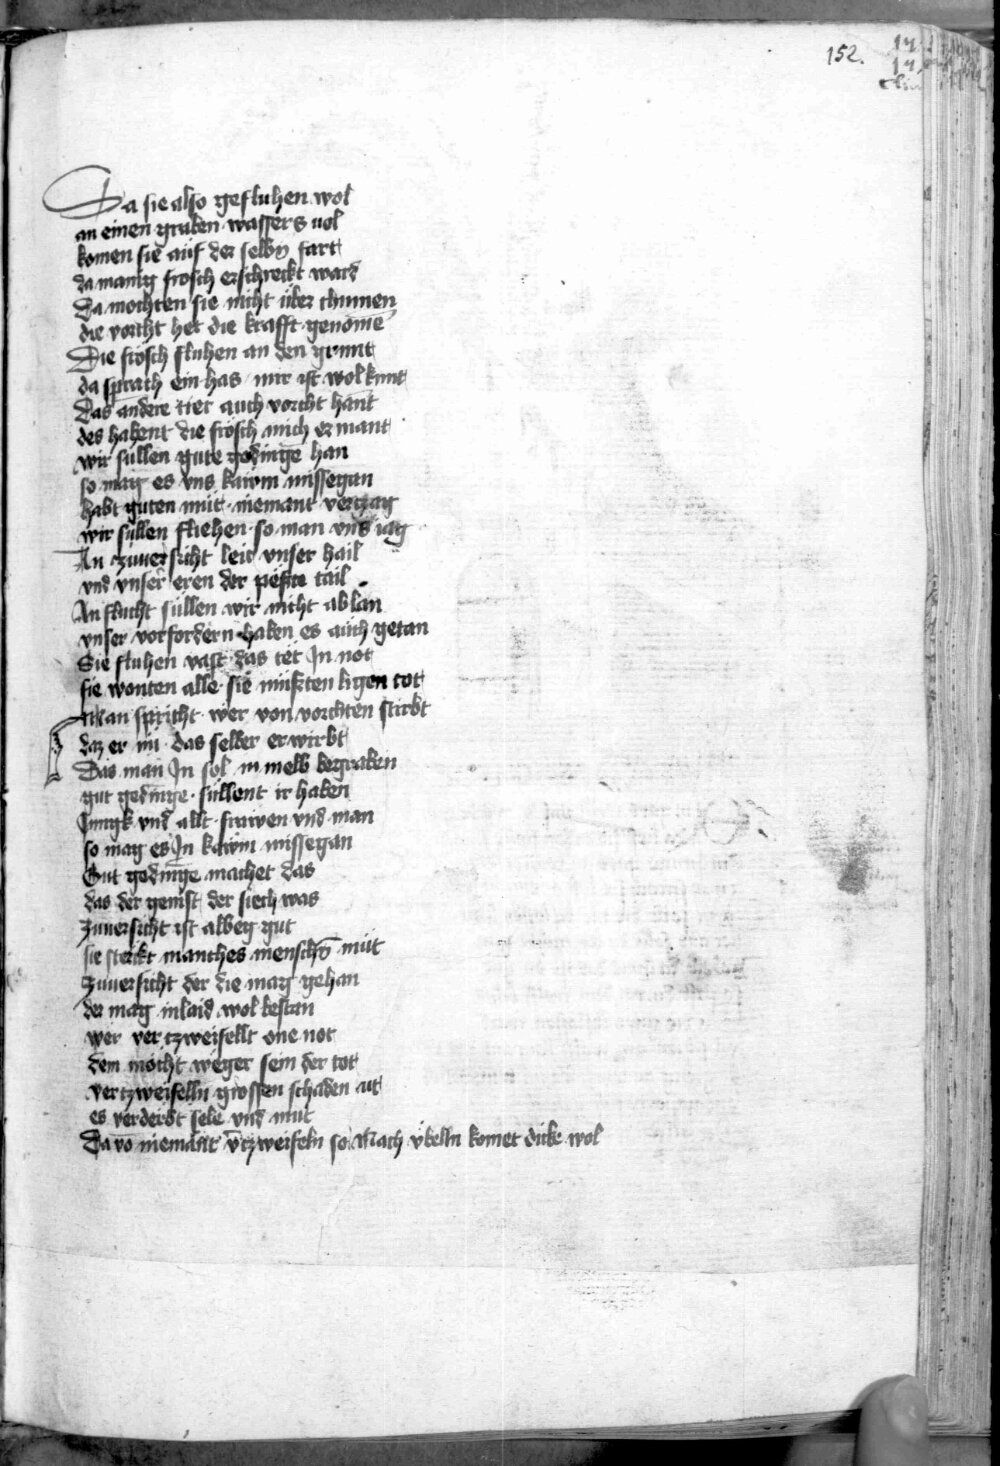 152.
Da sie also gefluhen wol
an einen graben wassers uol
komen sie auf der selbn fart
da manig frosch erschreckt ward
Da mochten sie niht über chumen
die vorcht het die krafft genomē
Die frösch fluhen an den grunt
da sprach ein has mir ist wol kunt
Das andere tier auch vorcht hant
des habent die frösch mich ermant
wir süllen gute gedinge han
so mag es vns kawm missegan
habt guten müt niemant vertzag
wir süllen fliehen so man vns iag
An zuuersicht leit vnser hail
vnd vnser eren der peste tail
An flucht süllen wir nicht ablan
vnser vorfordern haben es auch getan
Sie fluhen vast das tet In not
sie wonten alle sie müsten ligen tot
Man spricht wer von vorchten stirbt
daz er im das selber erwirbt
Das man In sol in melb begraben
gut gedinge süllent ir haben
Jungk vnd allt frawen vnd man
so mag es In kawm missegan
Gut gedinge machet das
das der genist der siech was
Zuuersicht ist albeg gut
sie sterkt manches menschē müt
Zuuersicht der die mag gehan
der mag in laid wol bestan
wer vertzweifellt one not
dem möcht weger sein der tot
vertzweifelln grossen schaden tüt
es verderbt sele vnd müt
Da vō niemant v̄tzweifeln so Nach übelln komet dicke wol